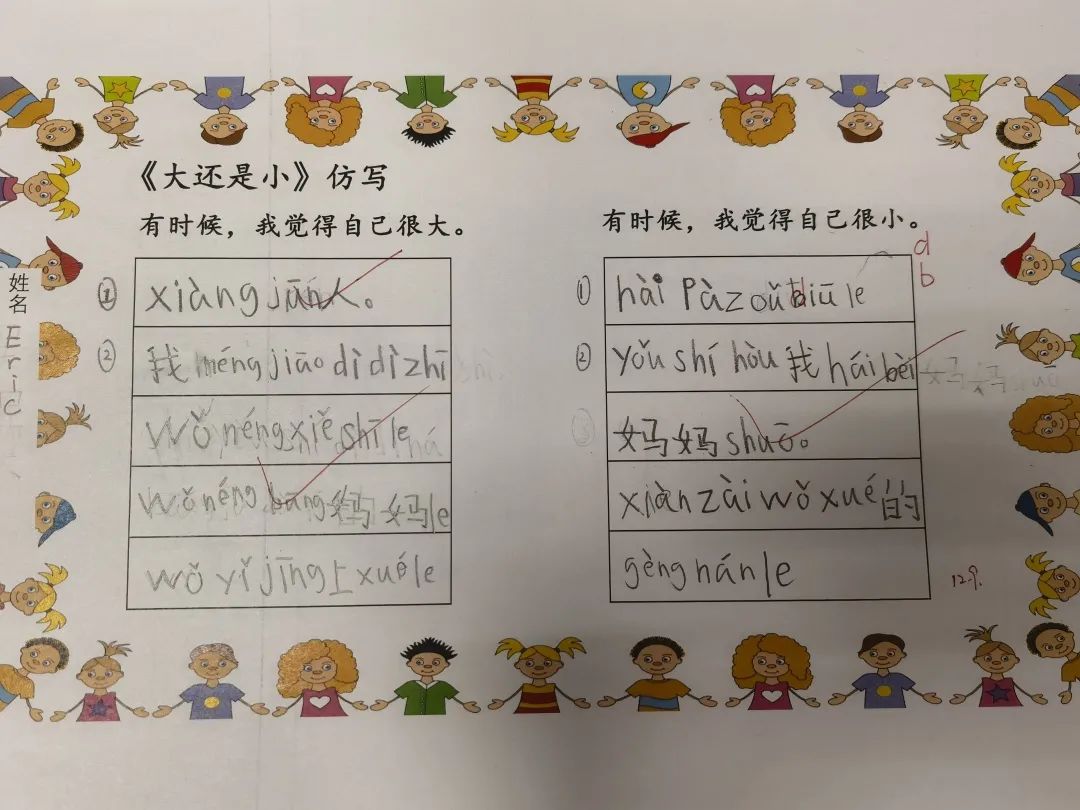 《大还是小》仿写
有时候，我觉得自己很大。
① xiàng jūn人。
② 我 méng jiāo dì dì zhī
wǒ néng xiě shī le
wǒ néng bāng 妈妈 le
wǒ yǐ jīng 上 xué le
有时候，我觉得自己很小。
d
b
① hài Pà zǒu diū le
② yǒu shí hòu 我 hái bèi
妈妈 shuō。
xiàn zài wǒ xué 的
gèng nán le
12个.
姓名
Eric